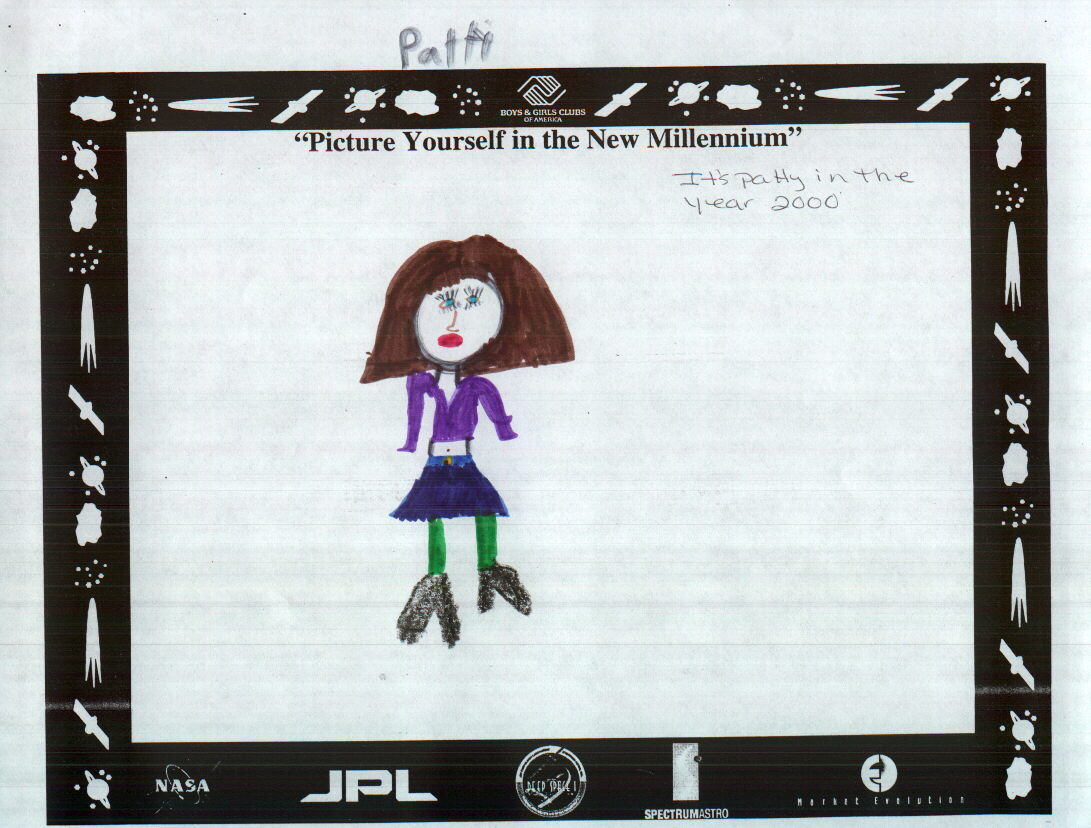 Patti
BOYS & GIRLS CLUBS
OF AMERICA
"Picture Yourself in the New Millennium"
It's patty in the
year 2000
NASA
JPL
DEEP SPACE 1
SPECTRUMASTRO
Market Evolution